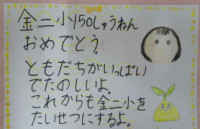 金二小150しゅうねん
おめでとう。
ともだちがいっぱい
でたのしいよ。
これからも金二小を
たいせつにするよ。